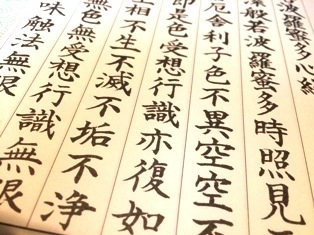 波羅蜜多心経
深般若波羅蜜多時照見
厄舎利子色不異空空不
即是色受想行識亦復如
相不生不滅不垢不浄
無色無受想行識無眼
味触法無眼